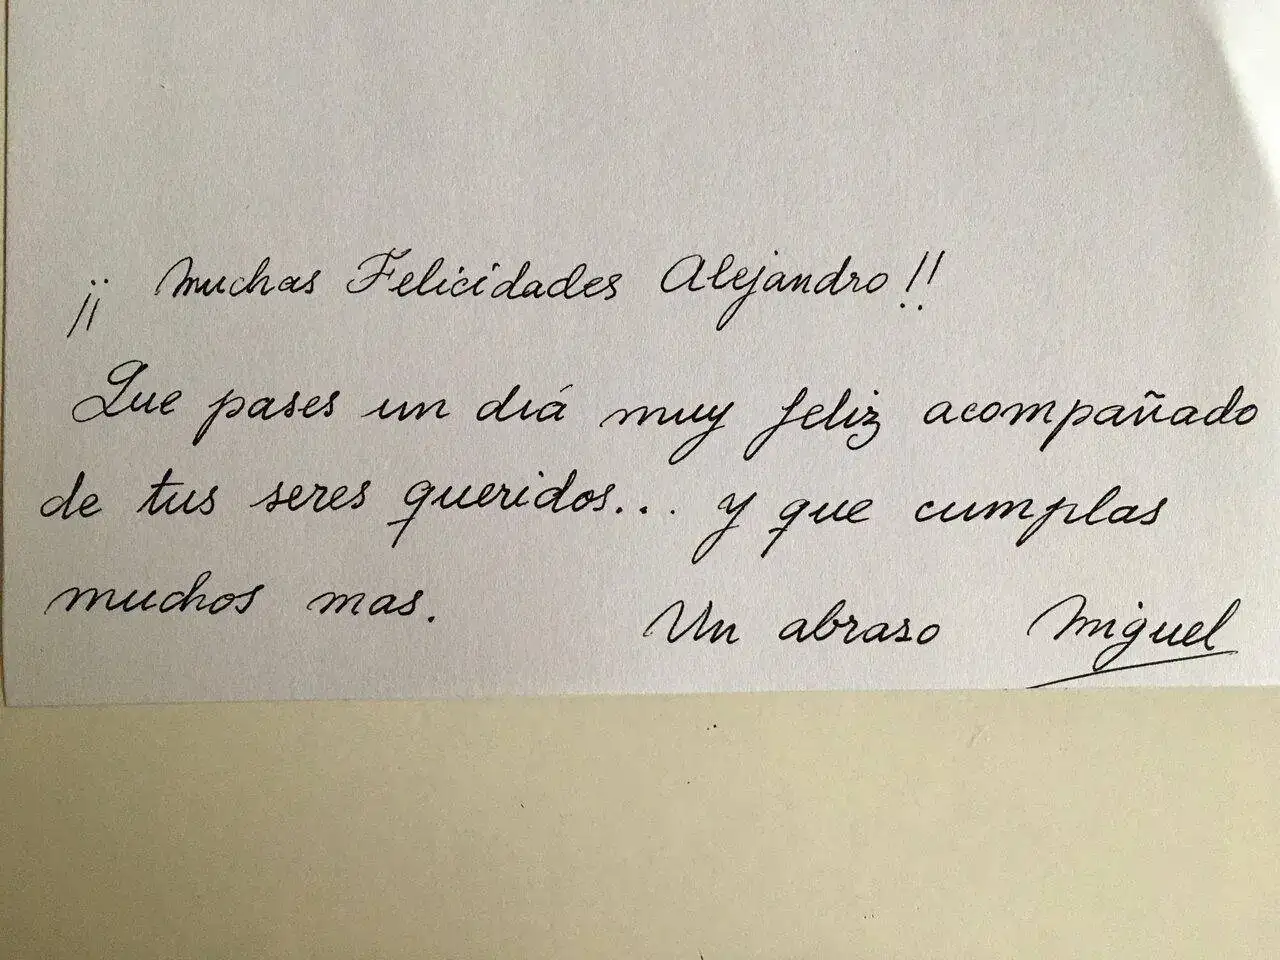 ¡¡ Muchas Felicidades Alejandro!!
Que pases un diá muy feliz acompañado
de tus seres queridos... y que cumplas
muchos mas.
Un abraso Miguel